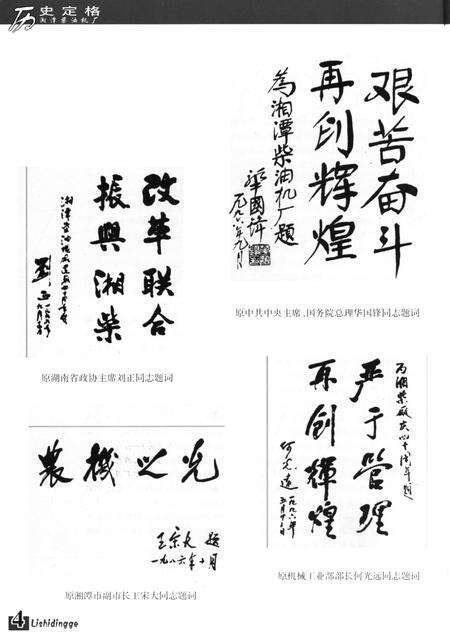 历史定格
湘潭柴油机厂
艰苦奋斗
再创辉煌
为湘潭柴油机厂题
华国锋
一九九六年九月
原中共中央主席、国务院总理华国锋同志题词
改革联合
振興湘柴
刘正
原湖南省政协主席刘正同志题词
为湘柴厂庆四十周年题
严于管理
再创輝煌
何光远
一九九六年
五月十三日
原机械工业部部长何光远同志题词
農機之光
王宋大 题
一九八六年十月
原湘潭市副市长王宋大同志题词
4 Lishidingge